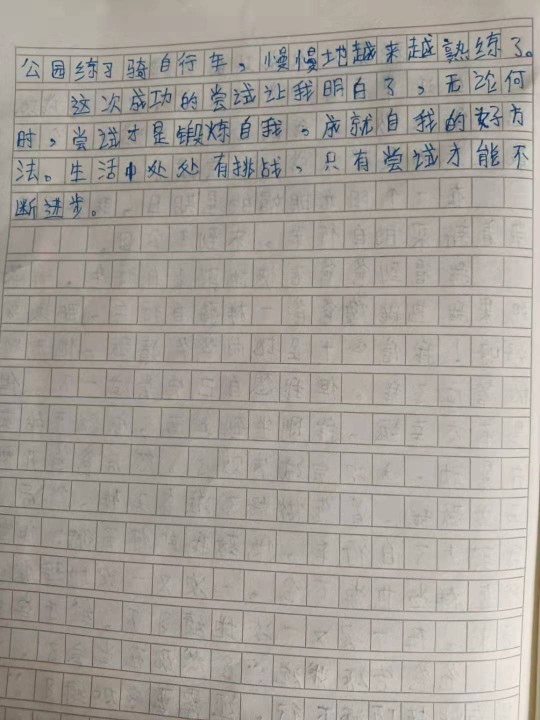 公园练习骑自行车，慢慢地越来越熟练了。
这次成功的尝试让我明白了，无论何
时，尝试才是锻炼自我，成就自我的好方
法。生活中处处有挑战，只有尝试才能不
断进步。